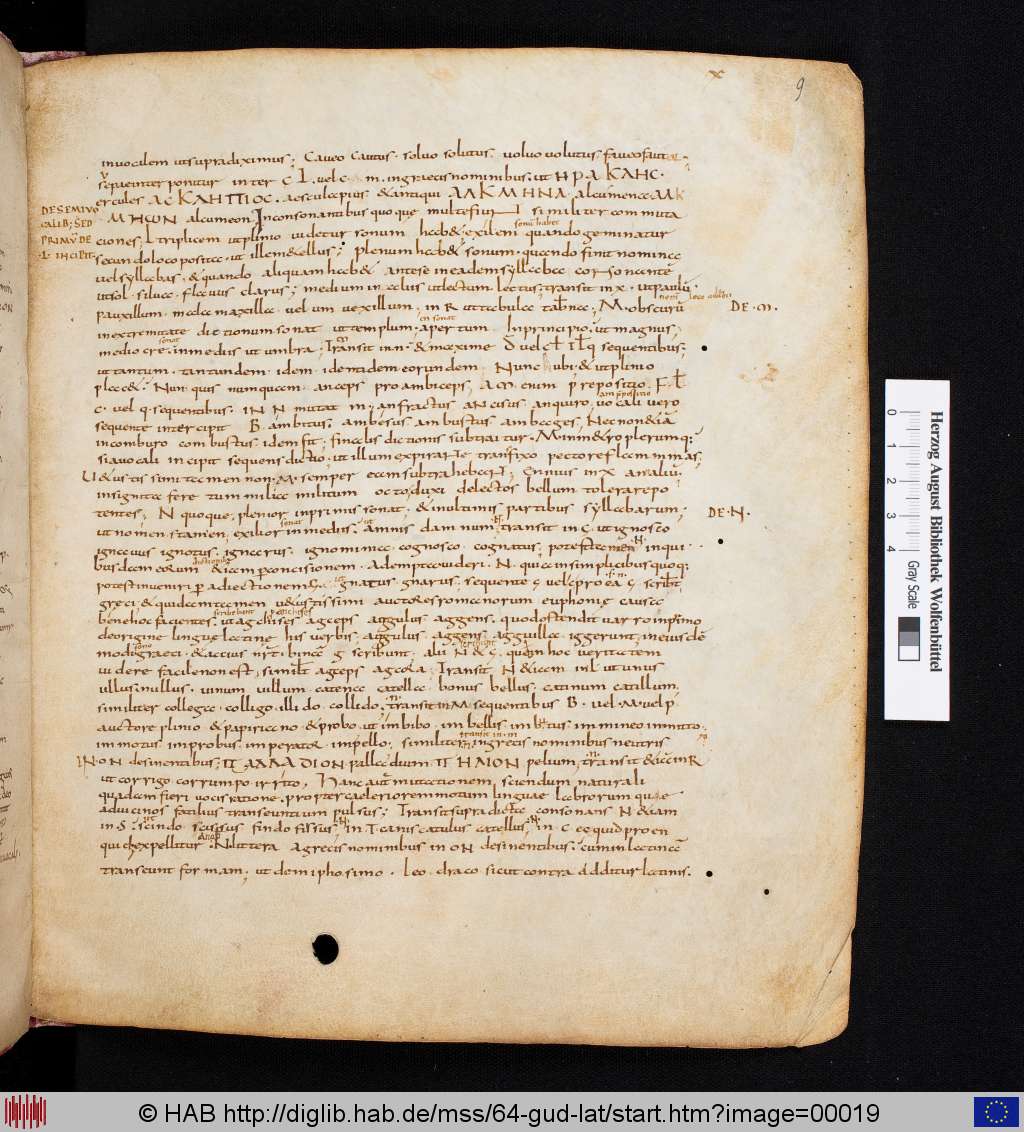 9
in vocalem ut supra diximus; Caveo cautus. solvo solutus. volvo volutus. faveo fautor.
sepe interponitur inter C L. vel c m. in grecis nominibus. ut ΗΡΑΚΛΗC.
ercules ΑCΚΛΗΠΙΟC. aesculapius &antiqui ΑΛΚΜΗΝΑ. alcumena ΑΛΚ
ΜΗωΝ alcumeon. In consonantibus quoque multe fiunt similiter commuta
DE SEMIVO
CALIB; SED
PRIMU DE
L INCIPIT
ciones; L triplicem ut plinio videtur sonum hab&; exilem quando geminatur
secundo loco posita. ut ille m&ellus; plenum hab& sonum. quando finit nomina
vel syllabas. & quando aliquam hab& ante se in eadem syllaba consonante
ut sol. silva. flavus clarus; medium in aliis ut lectum. lectus; transit in x. ut paulu
pauxillum. mala maxilla. velum vexillum. in R ut tabula tab̄na; M obscuru
DE .M.
in extremitate dictionum sonat ut templum. apertum. In principio. ut magnus
mediocre in mediis ut umbra; Transit in n. & maxime
ut tantum. tantundem. idem. identidem eorundem. Nunc ubi & ut plinio
plac&. Nun quis nunquam. anceps pro ambiceps; AM. enim prepositio F. L
c. vel q. sequentibus. IN N mutat m; anfractus ancisus anquiro; vocali vero
sequente intercipit B. ambitus. ambesus ambustus ambages; Nec non &iā
in comburo combustus idem fit; finalis dictionis subtraitur. M in m&ro plerumq;
si a vocali incipit sequens dictio. ut illum expirante transfixo pectore flammas;
V&ustissimi tamen non M semper eam subtrahebant; Ennius in x annaliu
insignita fere tum milia militum octo. duxit delectos bellum tolerare po
tentes; N quoque. plenior in primis sonat. & in ultimis partibus syllabarum.
DE .N.
ut nomen. stamen. exilior in mediis. ut amnis damnum; transit in C. ut ignosco
ignavus ignotus. ignarus. ignominia cognosco. cognatus; potest tamen in qui.
busdam eorum &iam per concisionem. adempta videri. N. quia in simplicibus quoq:
potest inveniri per adiectionem
greci & quidam tamen v&ustissimi auctores romanorum euphonię causa
bene hoc facientes. ut agchises agceps. aggulus aggens. quod ostendit varro in primo
de origine linguę latinę his verbis. aggulus aggens. agguilla. iggerunt. in eius dē
modi graeci. & accius nr̄. bina g scribunt. alii N & G. quod in hoc veritatem
videre facile non est; similiter agceps agcora; Transit N &iam in l. ut unus
ullus. nullus. vinum villum. catena catella. bonus bellus. catinum catillum.
similiter collega. colligo. illido. collido. transit in M sequentibus B. vel M. vel p
auctore plinio. & papiriano. & probo. ut imbibo. imbellis imbutus. immineo immitto.
immotus improbus. imperator. impello; similiter in grecis nominibus neutris
IN. ON desinentibus; ΠΑΛΛΑΔΙΟΝ palladium. ΠΗΛΙΟΝ pelium; transit &iam in R
ut corrigo. corrumpo irrito; Hanc autem mutationem. sciendum naturali
quadam fieri vocis ratione. propter celeriorem motum linguae labrorum quae
ad vicinos facilius transeuntium pulsus; Transit supradicta consonans N &iam
in S. ut scindo scissus findo fissus; in T. canis catulus catellus; in C ecquid pro en
quid expellitur. N littera a grecis nominibus in ON desinentibus. cum in latina
transeunt formam; ut demipho. simo. Leo. draco sicut contra additur latinis.
Herzog August Bibliothek Wolfenbüttel
0 1 2 3 4
Gray Scale
© HAB http://diglib.hab.de/mss/64-gud-lat/start.htm?image=00019